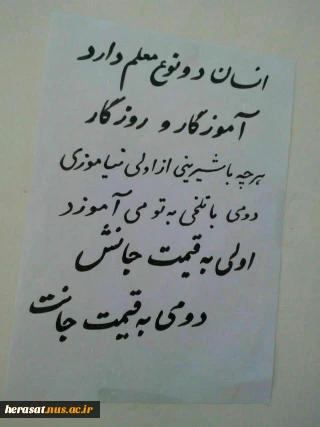 انسان دو نوع معلم دارد
آموزگار و روزگار
هرچه با شیرینی از اولی نیاموزی
دومی با تلخی به تو می آموزد
اولی به قیمت جانش
دومی به قیمت جانت
herasat.nus.ac.ir